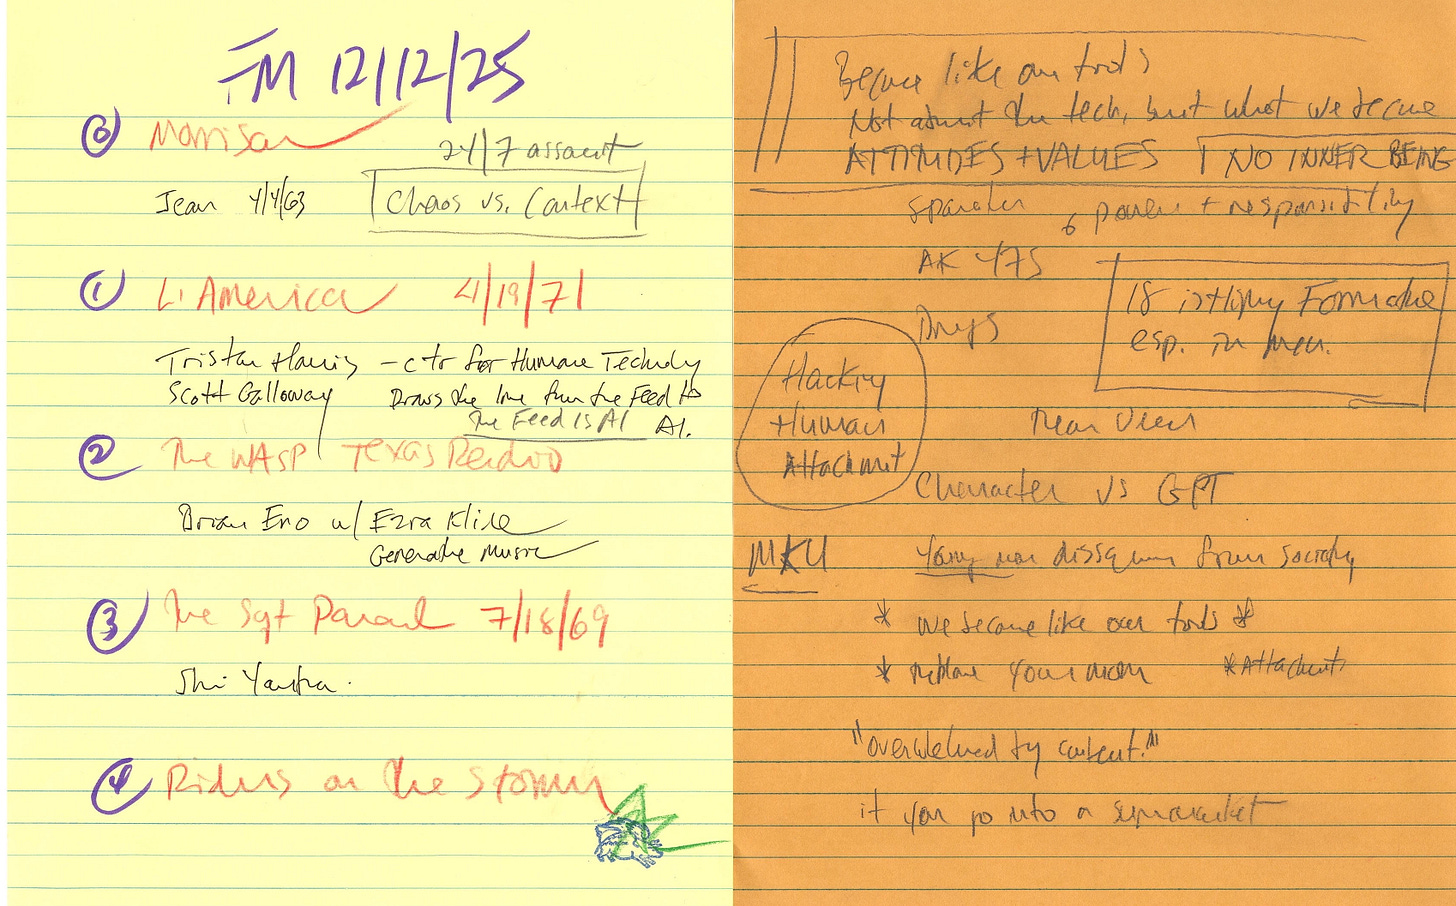 FM 12/12/25
0 Morrison
24/7 assault
Jean 4/4/63
Chaos vs. Context
1 L'America 4/19/71
Tristan Harris - ctr for Humane Technology
Scott Galloway Draws the line from the Feed to
The Feed is AI AI.
2 The WASP Texas Radio
Brian Eno w/ Ezra Kline
Generative Music
3 The Sgt 7/18/69
Shri Yantra.
4 Riders on the Storm
Become like our tools
Not about the tech, but what we become
ATTITUDES + VALUES NO INNER BEING
power + responsibility
AK 47s
18 is highly Formative
esp. in men.
Drugs
Hacking
Human
Attachment
Character vs GPT
MKU Young men from society
* we become like our tools *
* replace your mom * Attachment
"overwhelmed by content."
if you go into a supermarket